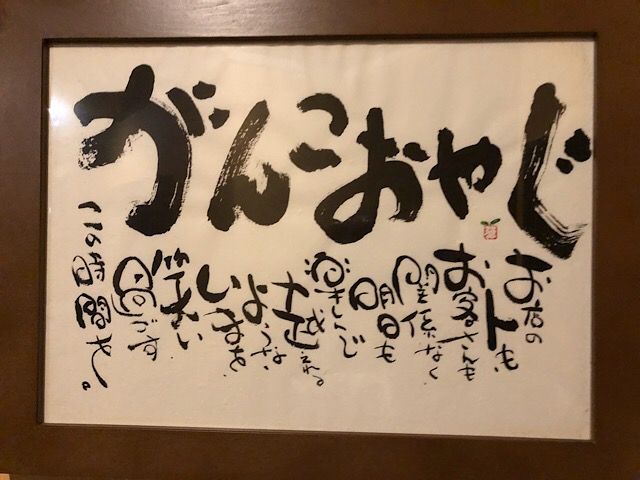 がんこおやじ
お店の
人も、
お客さんも
関係なく
明日も
楽しんで
越えれる。
ような
いまを、
笑い
過ごす
この時間を。